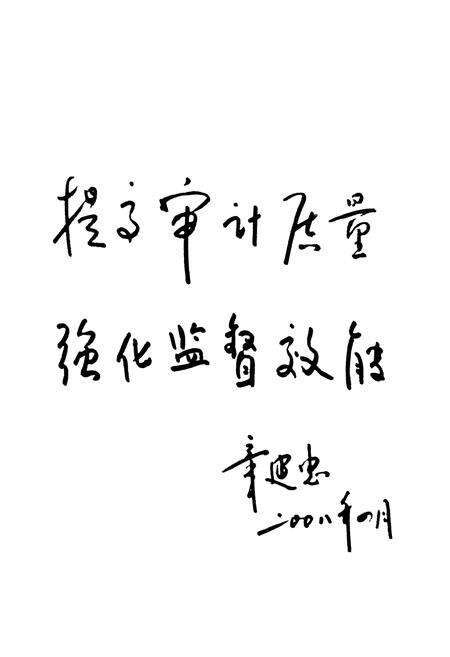 提高审计质量
强化监督效能
章建忠
二〇〇八年四月